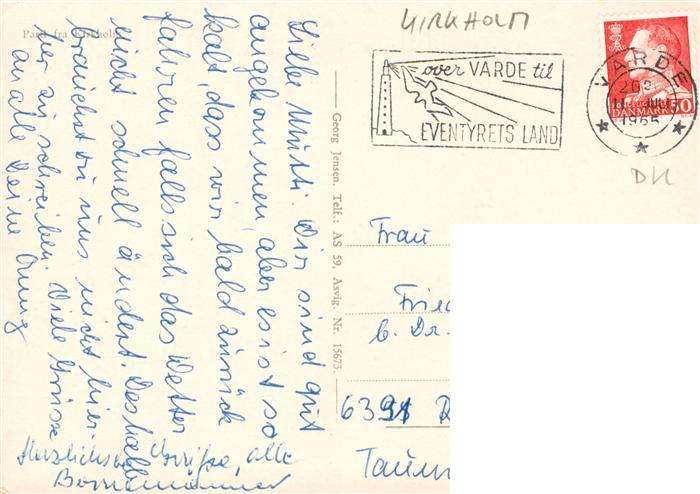 Parti fra Kirkholm
KIRKHOLM
over VARDE til
EVENTYRETS LAND
VARDE
1965
DANMARK
DK
Liebe Mutti! Wir sind gut
angekommen, aber es ist so
kalt, dass wir bald zurück
fahren falls sich das Wetter
nicht schnell ändert. Deshalb
brauchst du uns nicht hier
her zu schreiben. Viele Grüsse
an alle Deine
Herzlichste Grüsse, alle
Georg Jensen. Telf.: AS 59, Asvig. Nr. 15673.
Frau
Fried
b. Dr.
6391
Taun